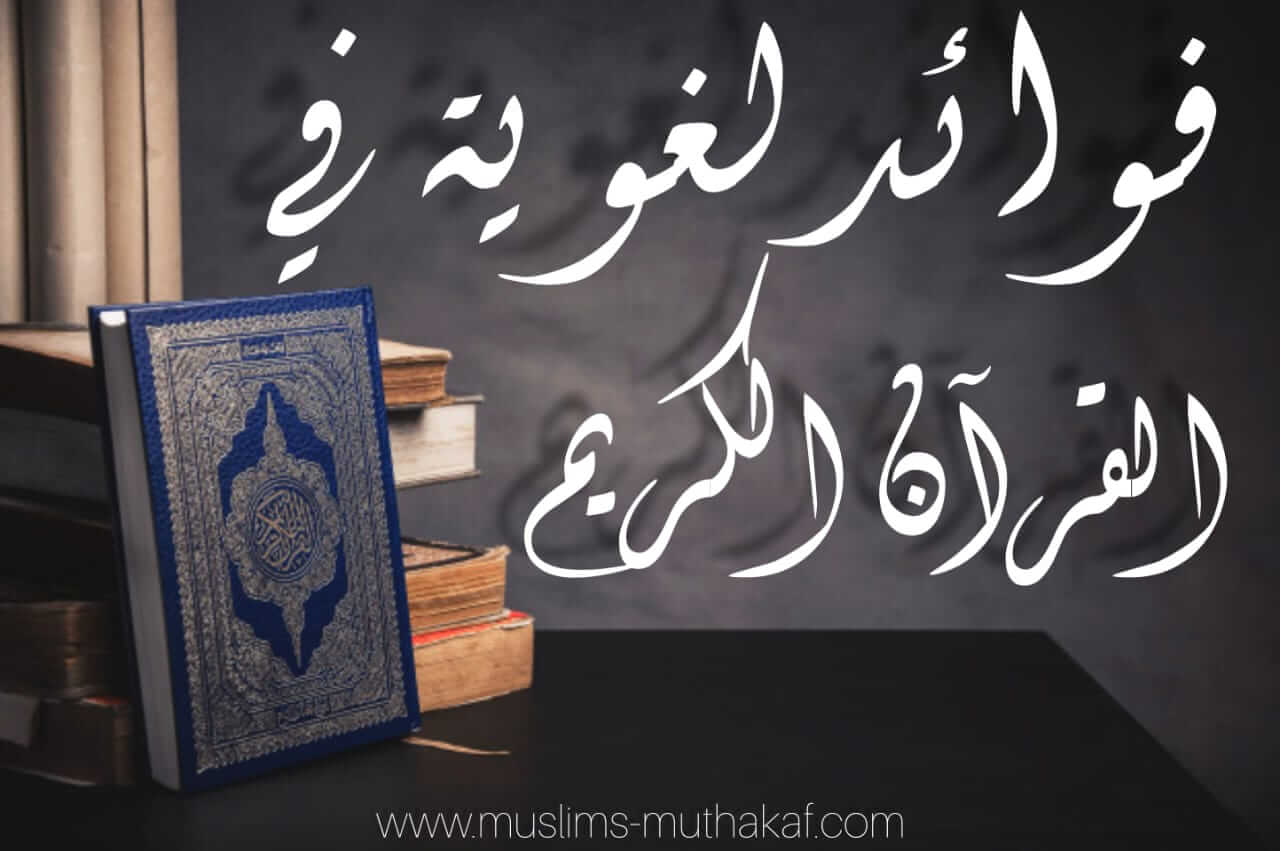 فوائد لغوية في
القرآن الكريم
القرآن الكريم
www.muslims-muthakaf.com